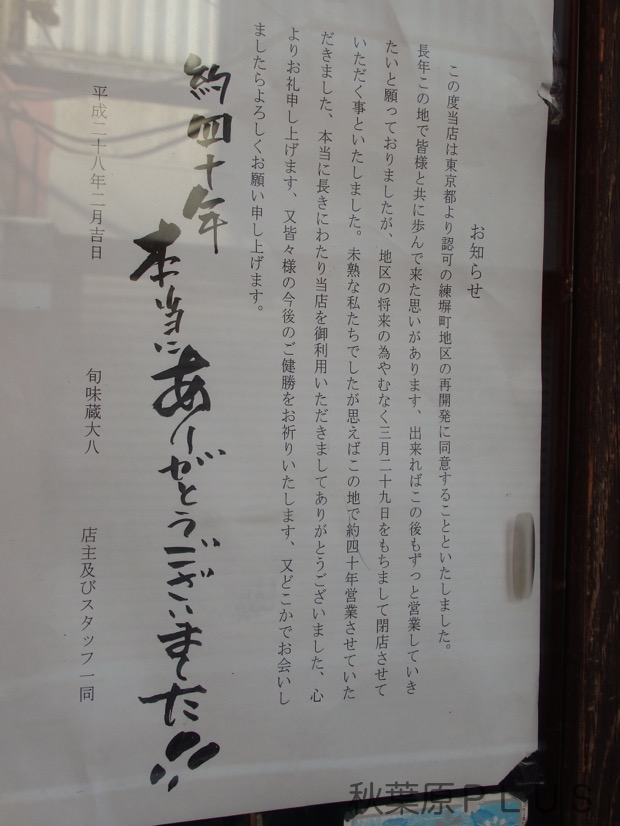 お知らせ
この度当店は東京都より認可の練塀町地区の再開発に同意することといたしました。
長年この地で皆様と共に歩んで来た思いがあります、出来ればこの後もずっと営業していき
たいと願っておりましたが、地区の将来の為やむなく三月二十九日をもちまして閉店させて
いただく事といたしました。未熟な私たちでしたが思えばこの地で約四十年営業させていた
だきました、本当に長きにわたり当店を御利用いただきましてありがとうございました、心
よりお礼申し上げます、又皆々様の今後のご健勝をお祈りいたします、又どこかでお会いし
ましたらよろしくお願い申し上げます。
約四十年
本当にありがとうございました!!!
平成二十八年二月吉日
旬味蔵大八
店主及びスタッフ一同
秋葉原PLUS